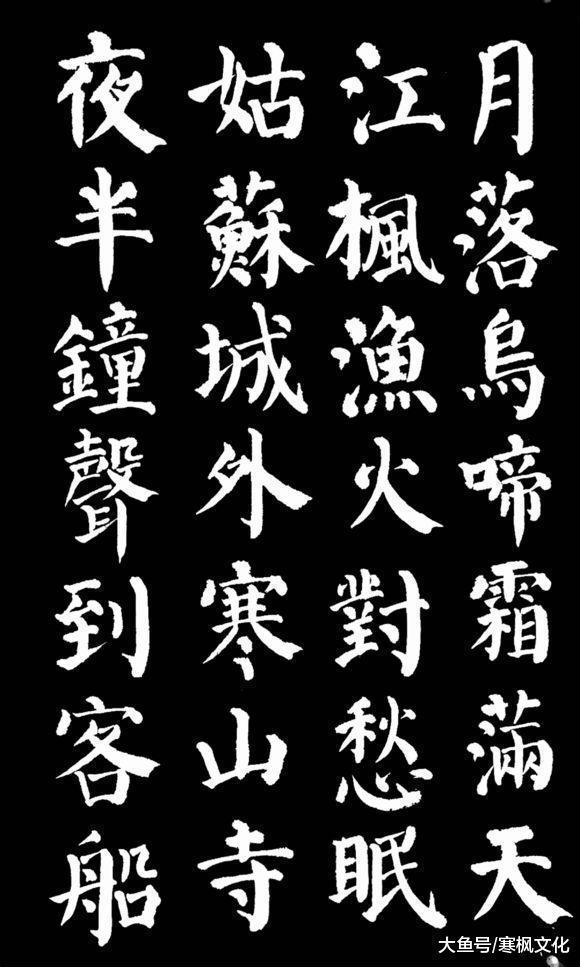 月落烏啼霜滿天
江楓漁火對愁眠
姑蘇城外寒山寺
夜半鐘聲到客船
大鱼号/寒枫文化